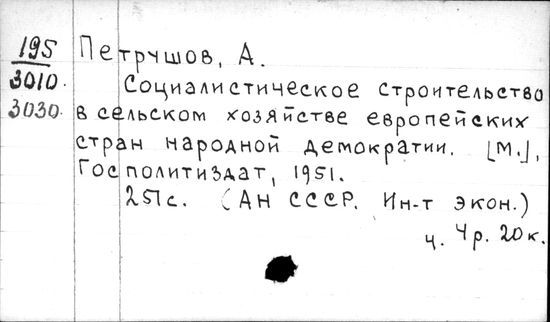 195 Петрушов, А.
3010. Социалистическое строительство
3030. в сельском хозяйстве европейских
стран народной демократии. [М.],
Госполитиздат, 1951.
251с. (АН СССР. Ин-т экон.)
ц. 4р. 20к.